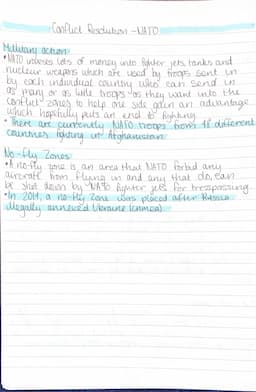 Conflict Resolution - NATO
Military action
• NATO invests lots of money into fighter jets, tanks and
nuclear weapons which are used by troops sent in
by each individual country who can send in
as many or as little troops as they want into the
conflict zones to help one side gain an advantage
which hopefully puts an end to fighting
• There are currently NATO troops from 18 different
countries fighting in Afghanistan
No-Fly Zones
• A no-fly zone is an area that NATO forbid any
aircraft from flying in and any that do, can
be shot down by NATO fighter jets for trespassing.
• In 2014, a no-fly zone was placed after Russia
illegally annexed Ukraine (Crimea)